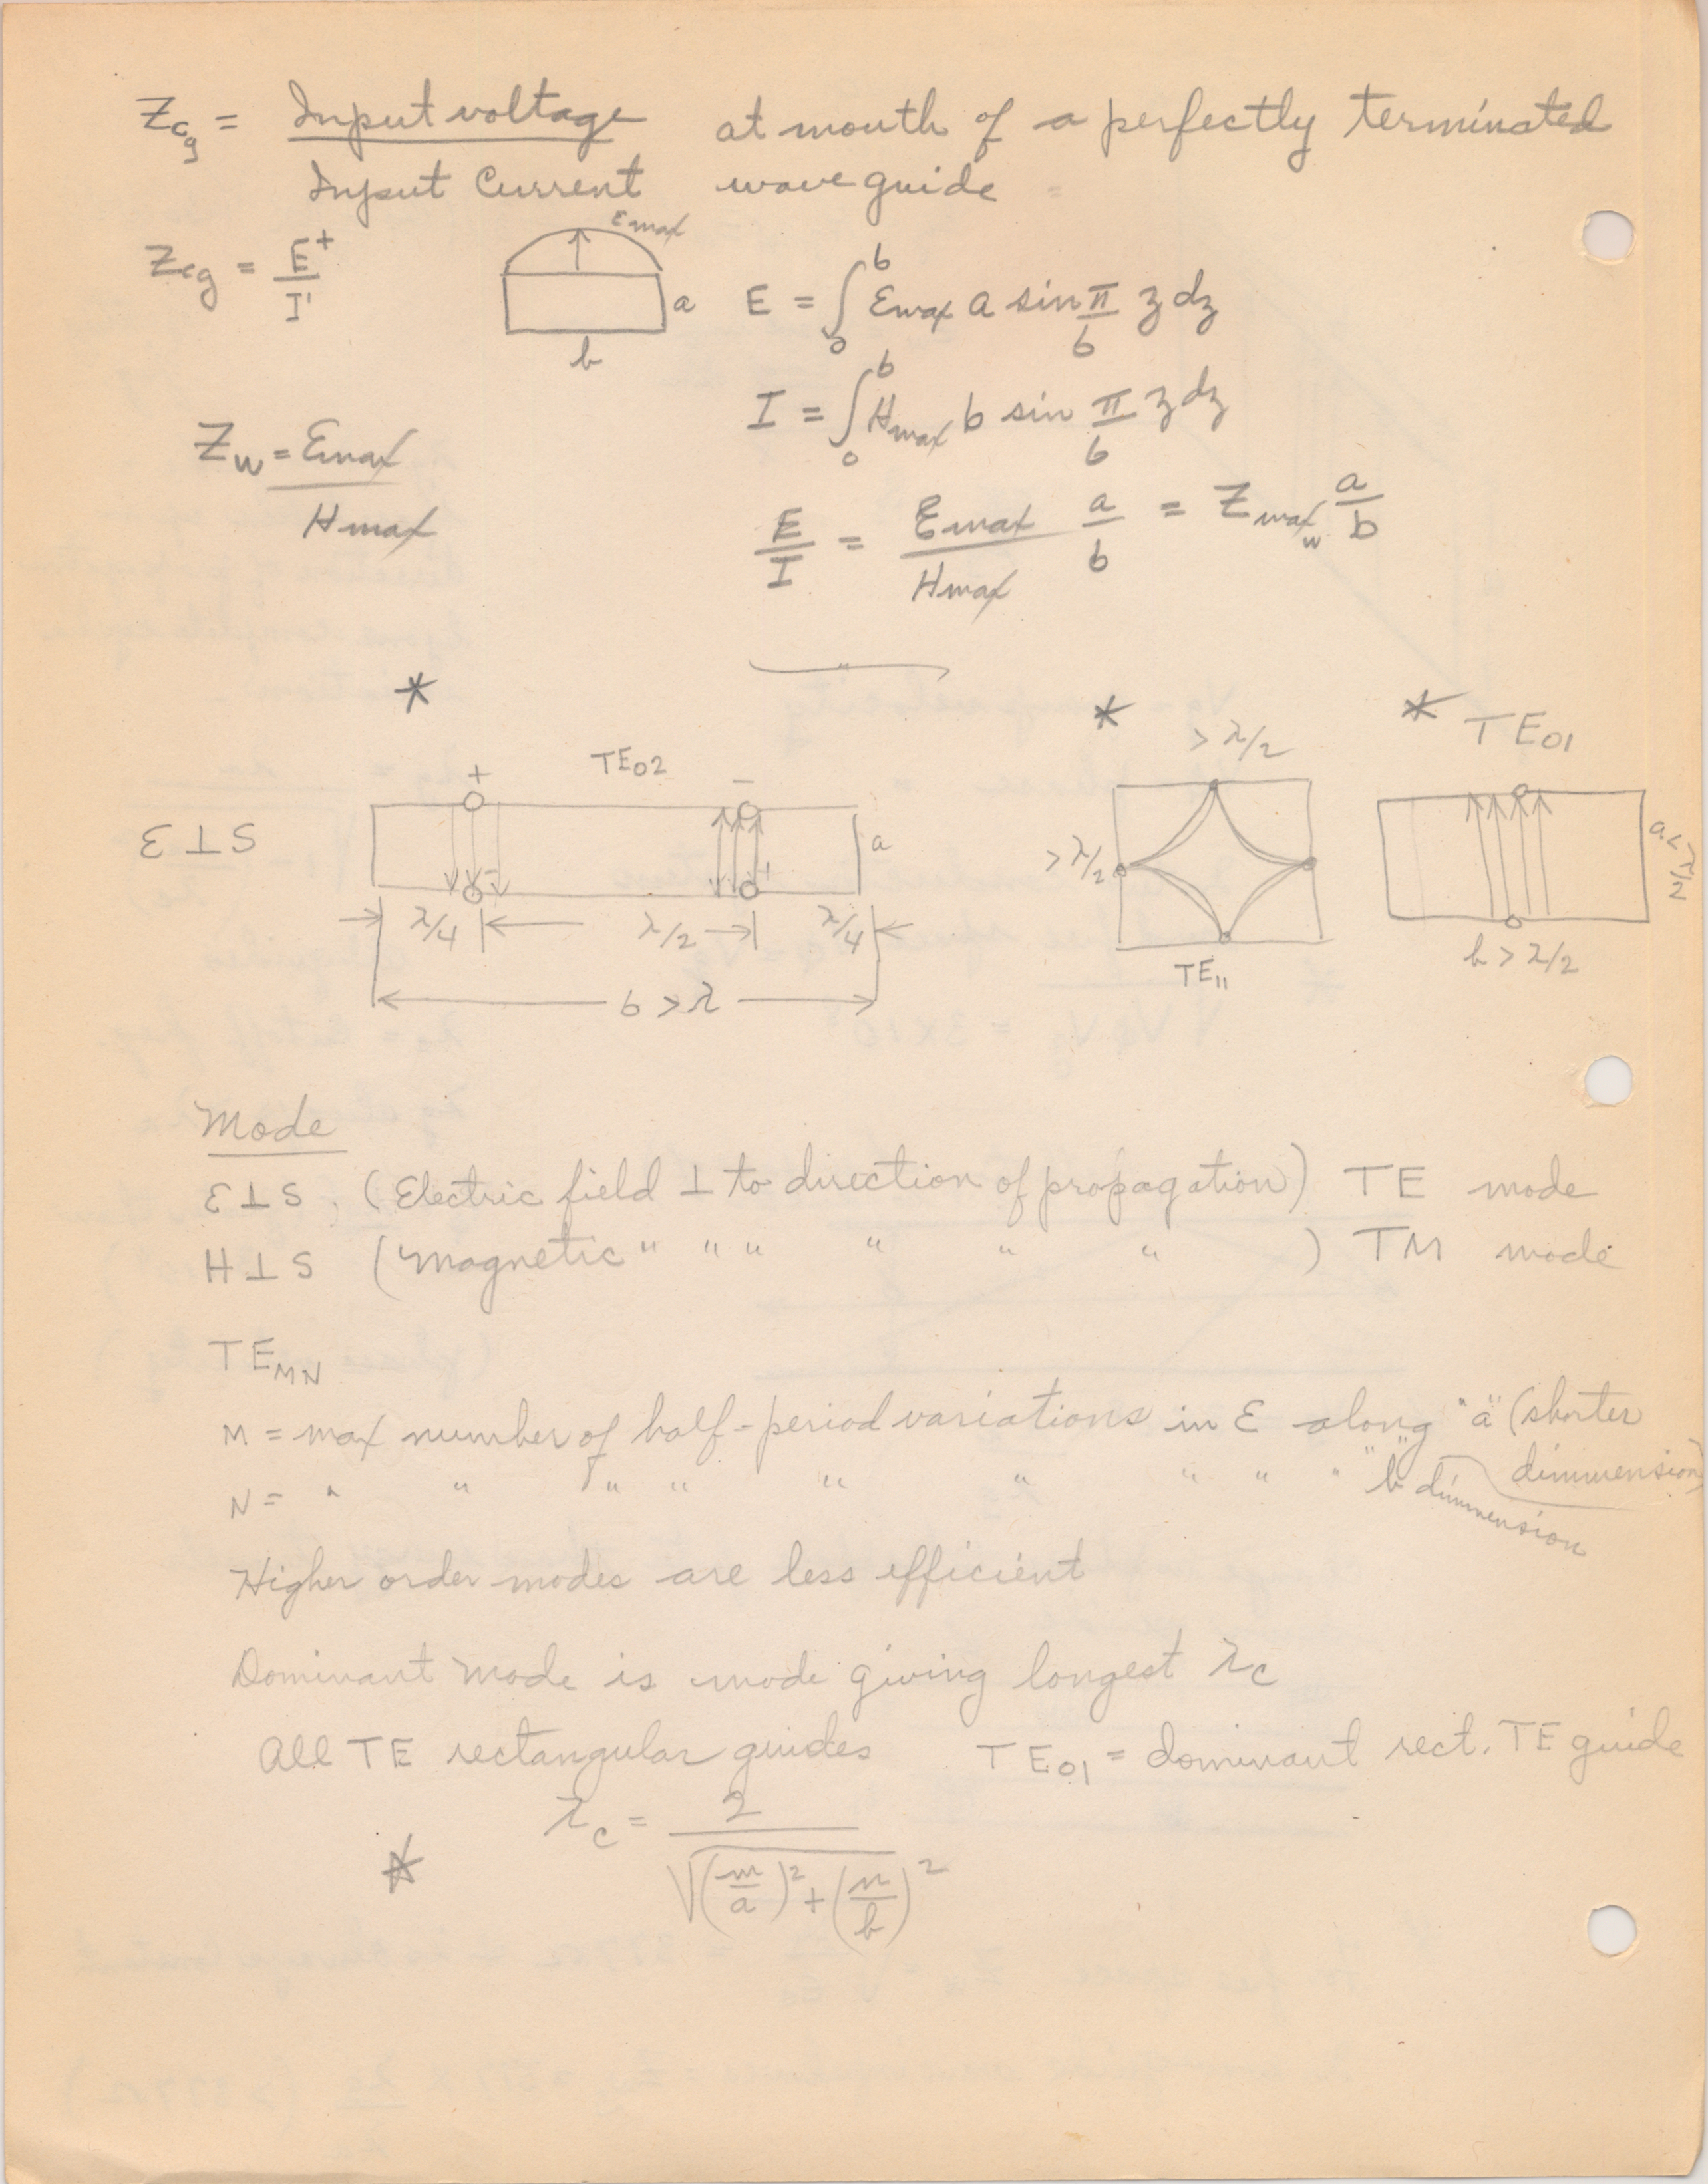 Zcg = Input voltage / Input Current at mouth of a perfectly terminated
wave guide
Zcg = E+ / I'
Emax
a
b
E = ∫₀ᵇ Ɛmax a sin π/b z dz
I = ∫₀ᵇ Hmax b sin π/b z dz
Zw = Ɛmax / Hmax
E/I = Ɛmax/Hmax a/b = Zmaxw a/b
* * * TE01
+ TE02 − > λ/2
Ɛ ⊥ S
a
> λ/2
a < λ/2
λ/4 λ/2 λ/4
b > λ/2
TE11
b > λ
Mode
Ɛ ⊥ S, (Electric field ⊥ to direction of propagation) TE mode
H ⊥ S (Magnetic " " " " " " ) TM mode
TEMN
M = max number of half-period variations in Ɛ along "a" (shorter
dimmension)
N = " " " " " " " " " "b" dimmension
Higher order modes are less efficient
Dominant mode is mode giving longest λc
All TE rectangular guides TE01 = dominant rect. TE guide
* λc = 2 / √(m/a)² + (n/b)²